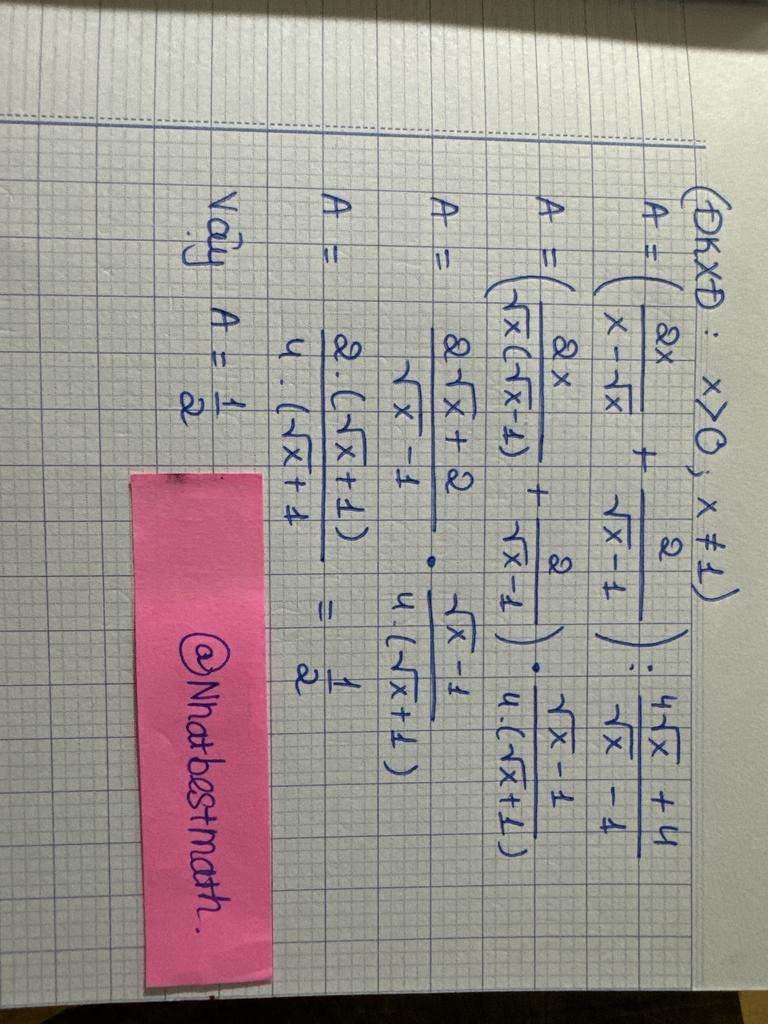 (ĐKXĐ: x>0; x ≠ 1)
A = ( 2x / x - √x + 2 / √x - 1 ) : 4√x + 4 / √x - 1
A = ( 2x / √x(√x-1) + 2 / √x-1 ) . √x - 1 / 4.(√x+1)
A = 2√x + 2 / √x - 1 . √x - 1 / 4.(√x+1)
A = 2.(√x+1) / 4.(√x+1 = 1 / 2
Vậy A = 1 / 2
@Nhatbestmath.